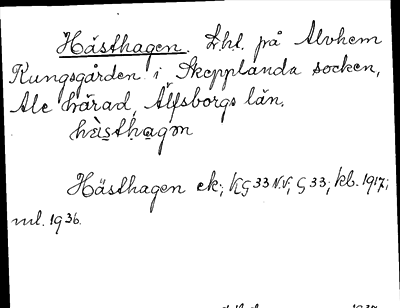 Hästhagen. Lhl. på Alvhem
Kungsgården i Skepplanda socken,
Ale härad, Älfsborgs län.
hàs̱tḥa̱gən
Hästhagen ek; KG 33 N.V; G 33; kb. 1917;
ml. 1936.